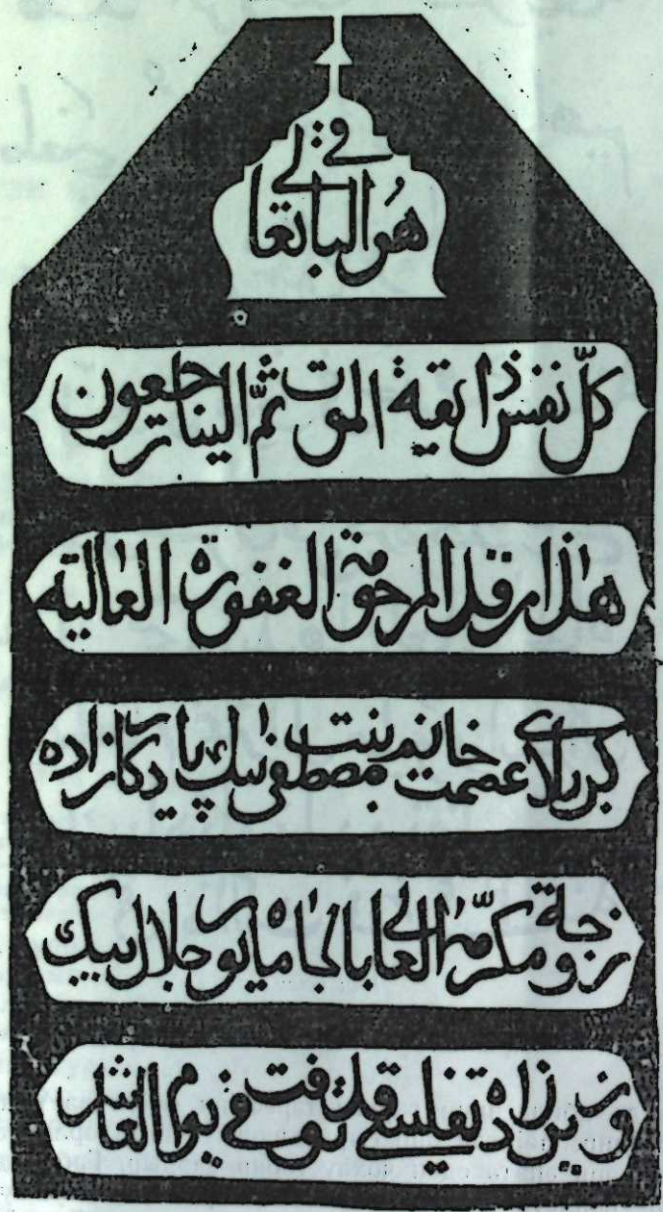 هو الباقي تعالى
كل نفس ذايقة الموت ثم الينا ترجعون
هذا مرقد المرحومة الغفورة العالية
كربلاى عصمت خانم بنت مصطفى بيك يادكارزاده
زوجة مكرمه العالى بالجاه مايور جلال بيك
وزيرزاده تفليسى قد توفت فى يوم العاشر